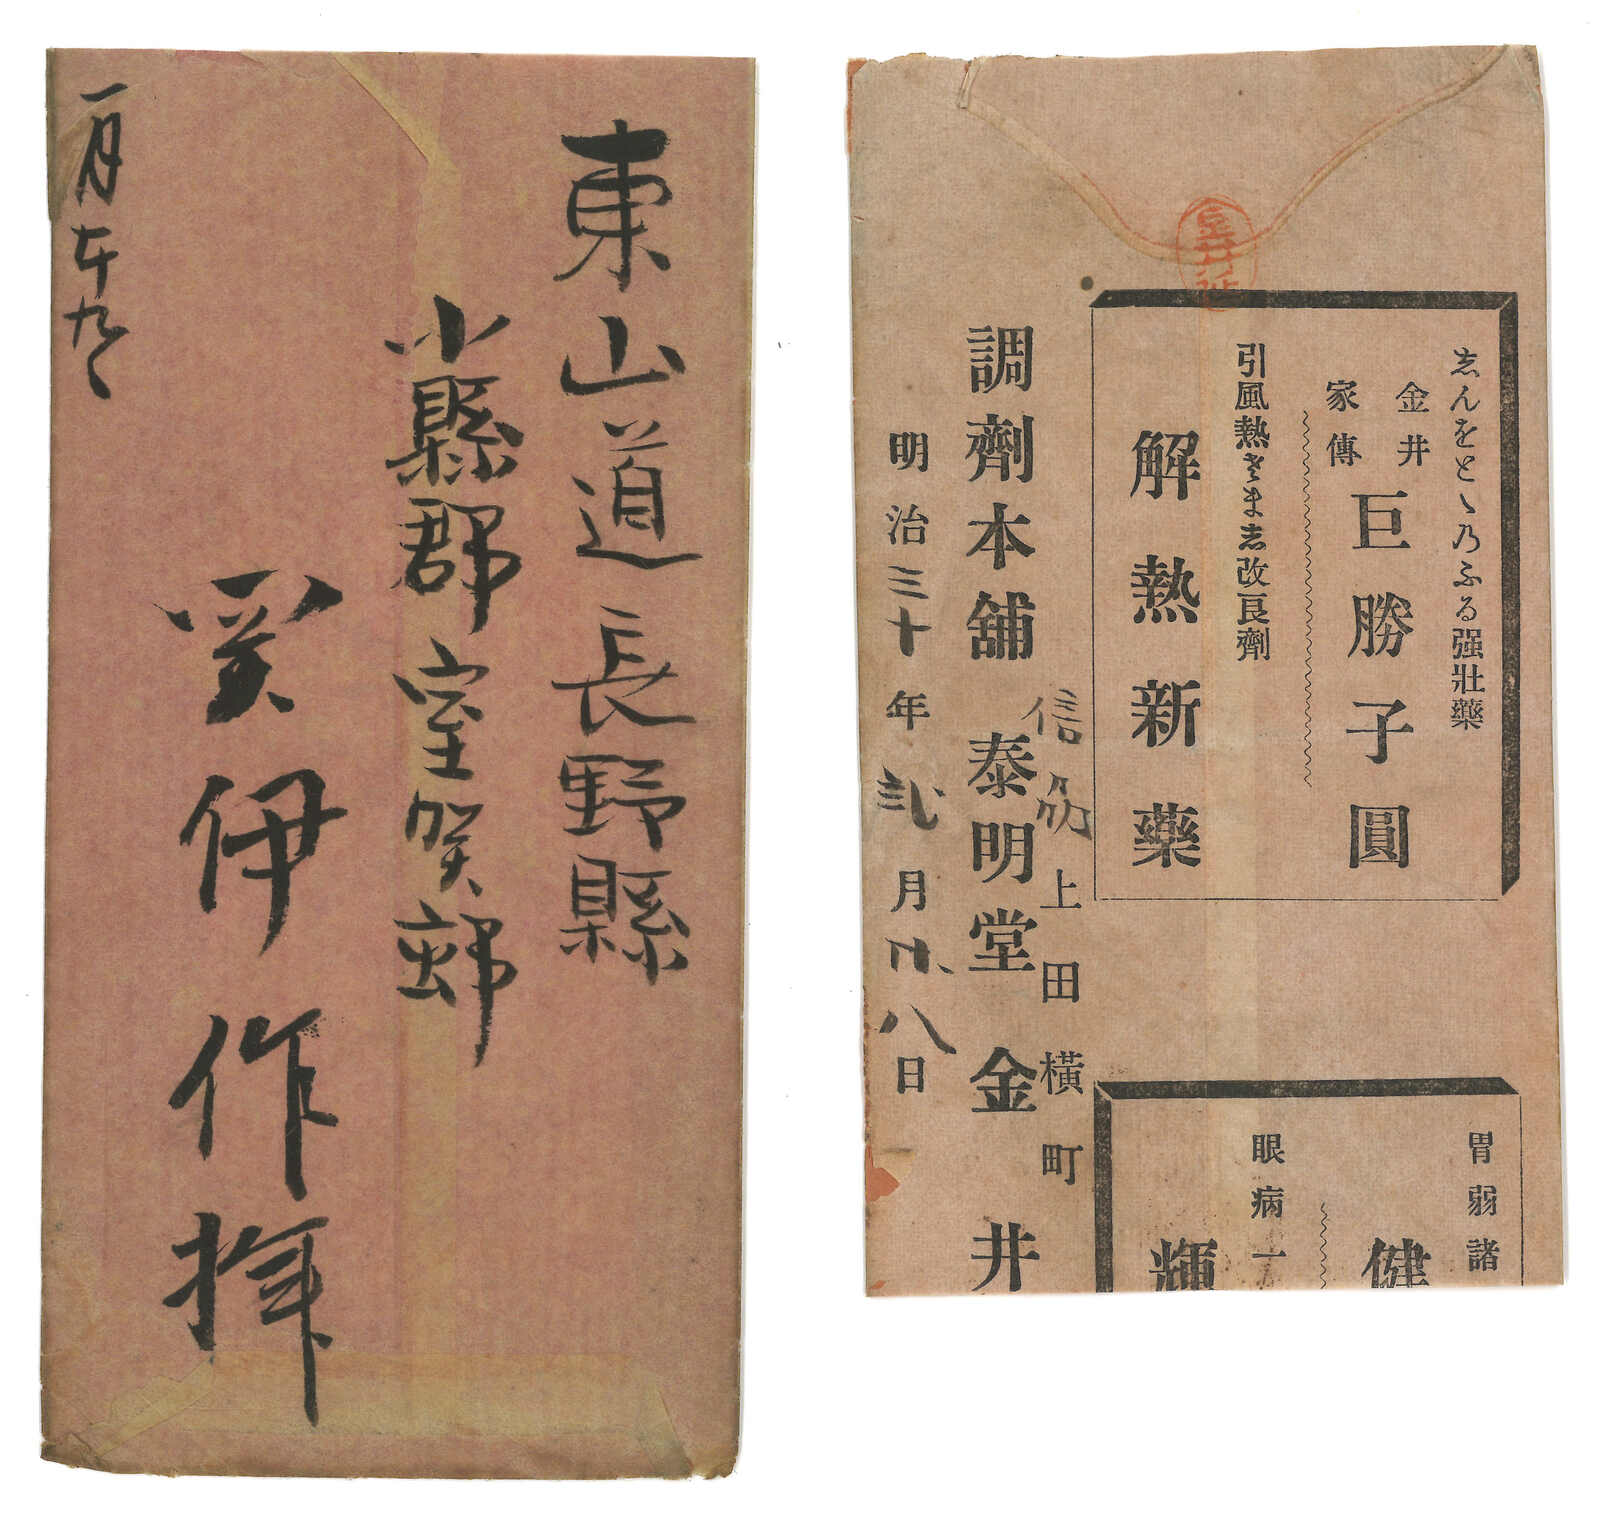 東山道長野縣
小縣郡室賀郵
伊作拜
一月
金井
志んをとゝ乃ふる强壯藥
金井
家傳
巨勝子圓
引風熱さま志改良劑
解熱新藥
信州上田橫町
調劑本舖 泰明堂 金井
明治三十年弐月廿八日
胃弱諸
健
眼病一
輝